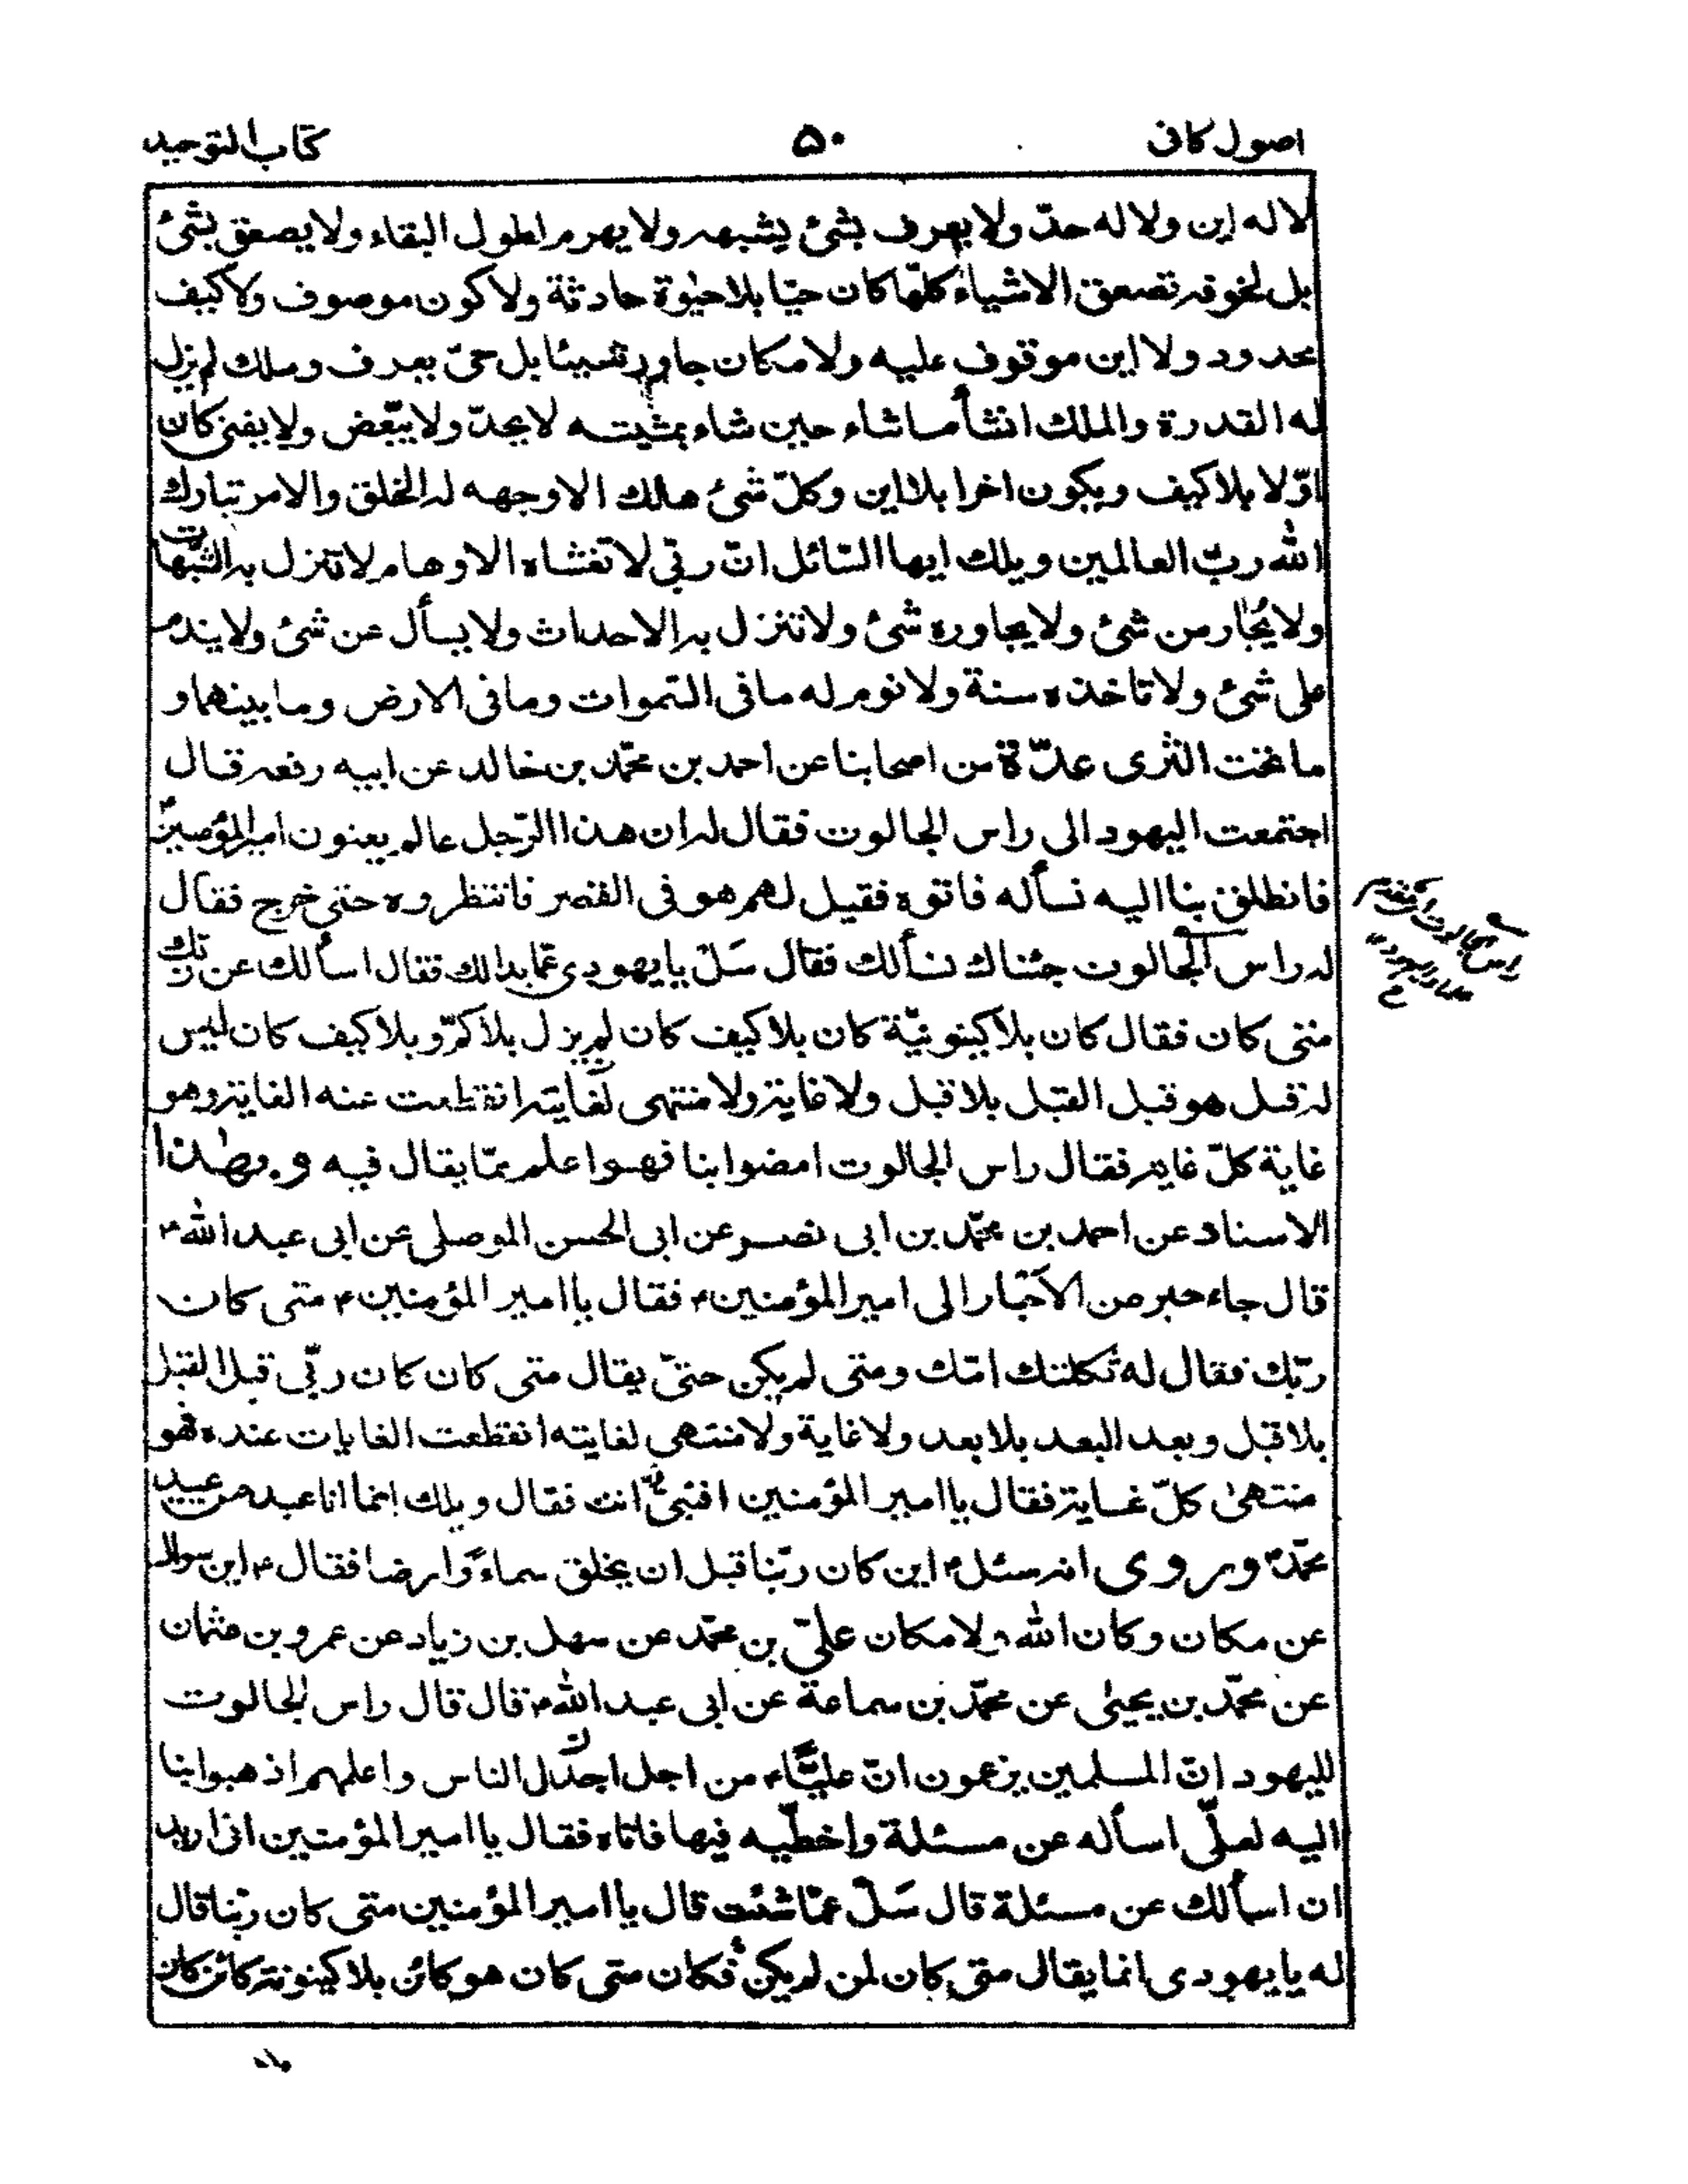 اصول كافى ۵۰ كتاب التوحيد
لا له اين ولا له حدّ ولا يعرف بشئ يشبهه ولا يهرم لطول البقاء ولا يصعق بشئ
بل لخوفه تصعق الاشياء كلّها كان حيّا بلا حيٰوة حادثة ولا كون موصوف ولا كيف
محدود ولا اين موقوف عليه ولا مكان جاور شيئا بل حىّ يعرف وملك لم يزل
له القدرة والملك انشأ ما شاء حين شاء بمشيته لا يحدّ ولا يبّعض ولا يفنى كان
اوّلا بلا كيف ويكون اخرا بلا اين وكلّ شئ هالك الا وجهه له الخلق والامر تبارك
الله ربّ العالمين ويلك ايها السّائل انّ ربّى لا تغشاه الاوهام لا تنزل به الشّبهات
ولا يُجار من شئ ولا يجاوره شئ ولا تنزل به الاحداث ولا يسأل عن شئ ولا يندم
على شئ ولا تاخذه سنة ولا نوم له ما فى السّموات وما فى الارض وما بينهما و
ما تحت الثّرى عدّة من اصحابنا عن احمد بن محمّد بن خالد عن ابيه رفعه قال
اجتمعت اليهود الى راس الجالوت فقال له ان هذا الرّجل عالم يعنون امير المؤمنينؑ
فانطلق بنا اليه نسأله فاتوه فقيل لهم هو فى القصر فانتظروه حتى خرج فقال
له راس الجالوت جئناك نسألك فقال سَلْ يا يهودى عمّا بدا لك فقال اسألك عن ربّك
متى كان فقال كان بلا كينونيّة كان بلا كيف كان لم يزل بلا كمّ وبلا كيف كان ليس
له قبل هو قبل القبل بلا قبل ولا غاية ولا منتهى لغايته انقطعت عنه الغاية وهو
غاية كلّ غاية فقال راس الجالوت امضوا بنا فهو اعلم ممّا يقال فيه و بهٰذا
الاسناد عن احمد بن محمّد بن ابى نصر عن ابى الحسن الموصلى عن ابى عبد اللهؑ
قال جاء حبر من الأحبار الى امير المؤمنينؑ فقال يا امير المؤمنينؑ متى كان
ربّك فقال له ثكلتك امّك ومتى لم يكن حتىّ يقال متى كان كان ربّى قبل القبل
بلا قبل وبعد البعد بلا بعد ولا غاية ولا منتهى لغايته انقطعت الغايات عنده فهو
منتهىٰ كلّ غاية فقال يا امير المؤمنين افنبىّ انت فقال ويلك انما انا عبد من عبيد
محمّدؐ وروى انه سئلؑ اين كان ربّنا قبل ان يخلق سماءً وارضا فقالؑ اين سوال
عن مكان وكان الله ولا مكان علىّ بن محمّد عن سهل بن زياد عن عمرو بن عثمان
عن محمّد بن يحيىٰ عن محمّد بن سماعة عن ابى عبد اللهؑ قال قال راس الجالوت
لليهود انّ المسلمين يزعمون انّ عليّاؑ من اجل اجدل الناس واعلمهم اذهبوا بنا
اليه لعلّى اسأله عن مسئلة واخطّيه فيها فاتاه فقال يا امير المؤمنين انى اريد
ان اسألك عن مسئلة قال سَلْ عمّا شئت قال يا امير المؤمنين متى كان ربّنا قال
له يا يهودى انما يقال متى كان لمن لم يكن فكان متى كان هو كائن بلا كينونة كائن كان